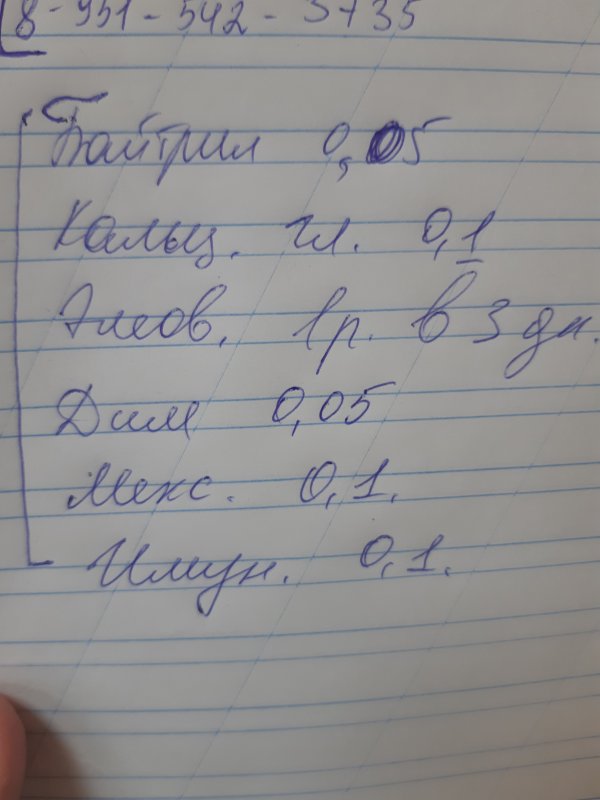 8-951-542-3735
Байтрил 0,05
Кальц. гл. 0,1
Элеов. 1р. в 3 дн.
Дим 0,05
Мекс. 0,1.
Имун. 0,1.